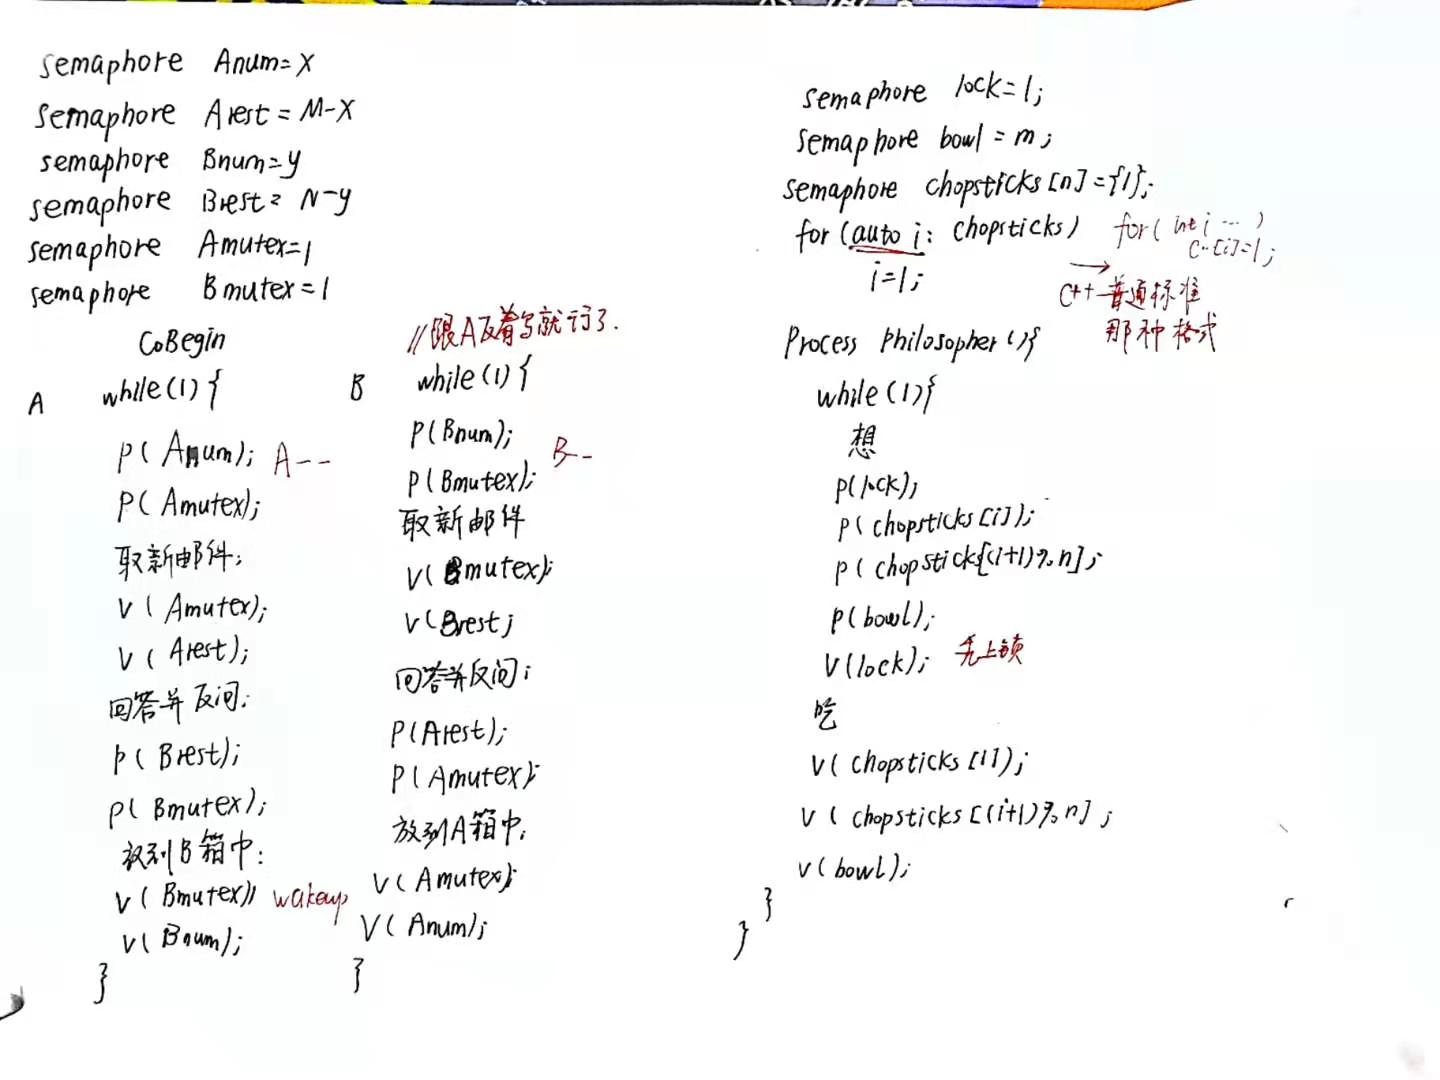 semaphore Anum=X
semaphore Arest = M-X
semaphore Bnum=y
semaphore Brest= N-y
semaphore Amutex=1
semaphore Bmutex=1
CoBegin
A while(1){
P(Anum); A--
P(Amutex);
取新邮件;
V(Amutex);
V(Arest);
回答并反问;
P(Brest);
P(Bmutex);
放到B箱中;
V(Bmutex); wakeup
V(Bnum);
}
//跟A反着写就行了.
B while(1){
P(Bnum);
B--
P(Bmutex);
取新邮件
V(Bmutex);
V(Brest;
回答并反问;
P(Arest);
P(Amutex);
放到A箱中;
V(Amutex);
V(Anum);
}
semaphore lock=1;
semaphore bowl=m;
semaphore chopsticks[n]={1};
for(auto i: chopsticks) for(int i ...)
C..[i]=1;
i=1;
C++普通标准
那种格式
Process philosopher(){
while(1){
想
P(lock);
P(chopsticks[i]);
P(chopstick[(i+1)%n];
P(bowl);
V(lock); 先上锁
吃
V(chopsticks[i]);
V(chopsticks[(i+1)%n];
V(bowl);
}
}